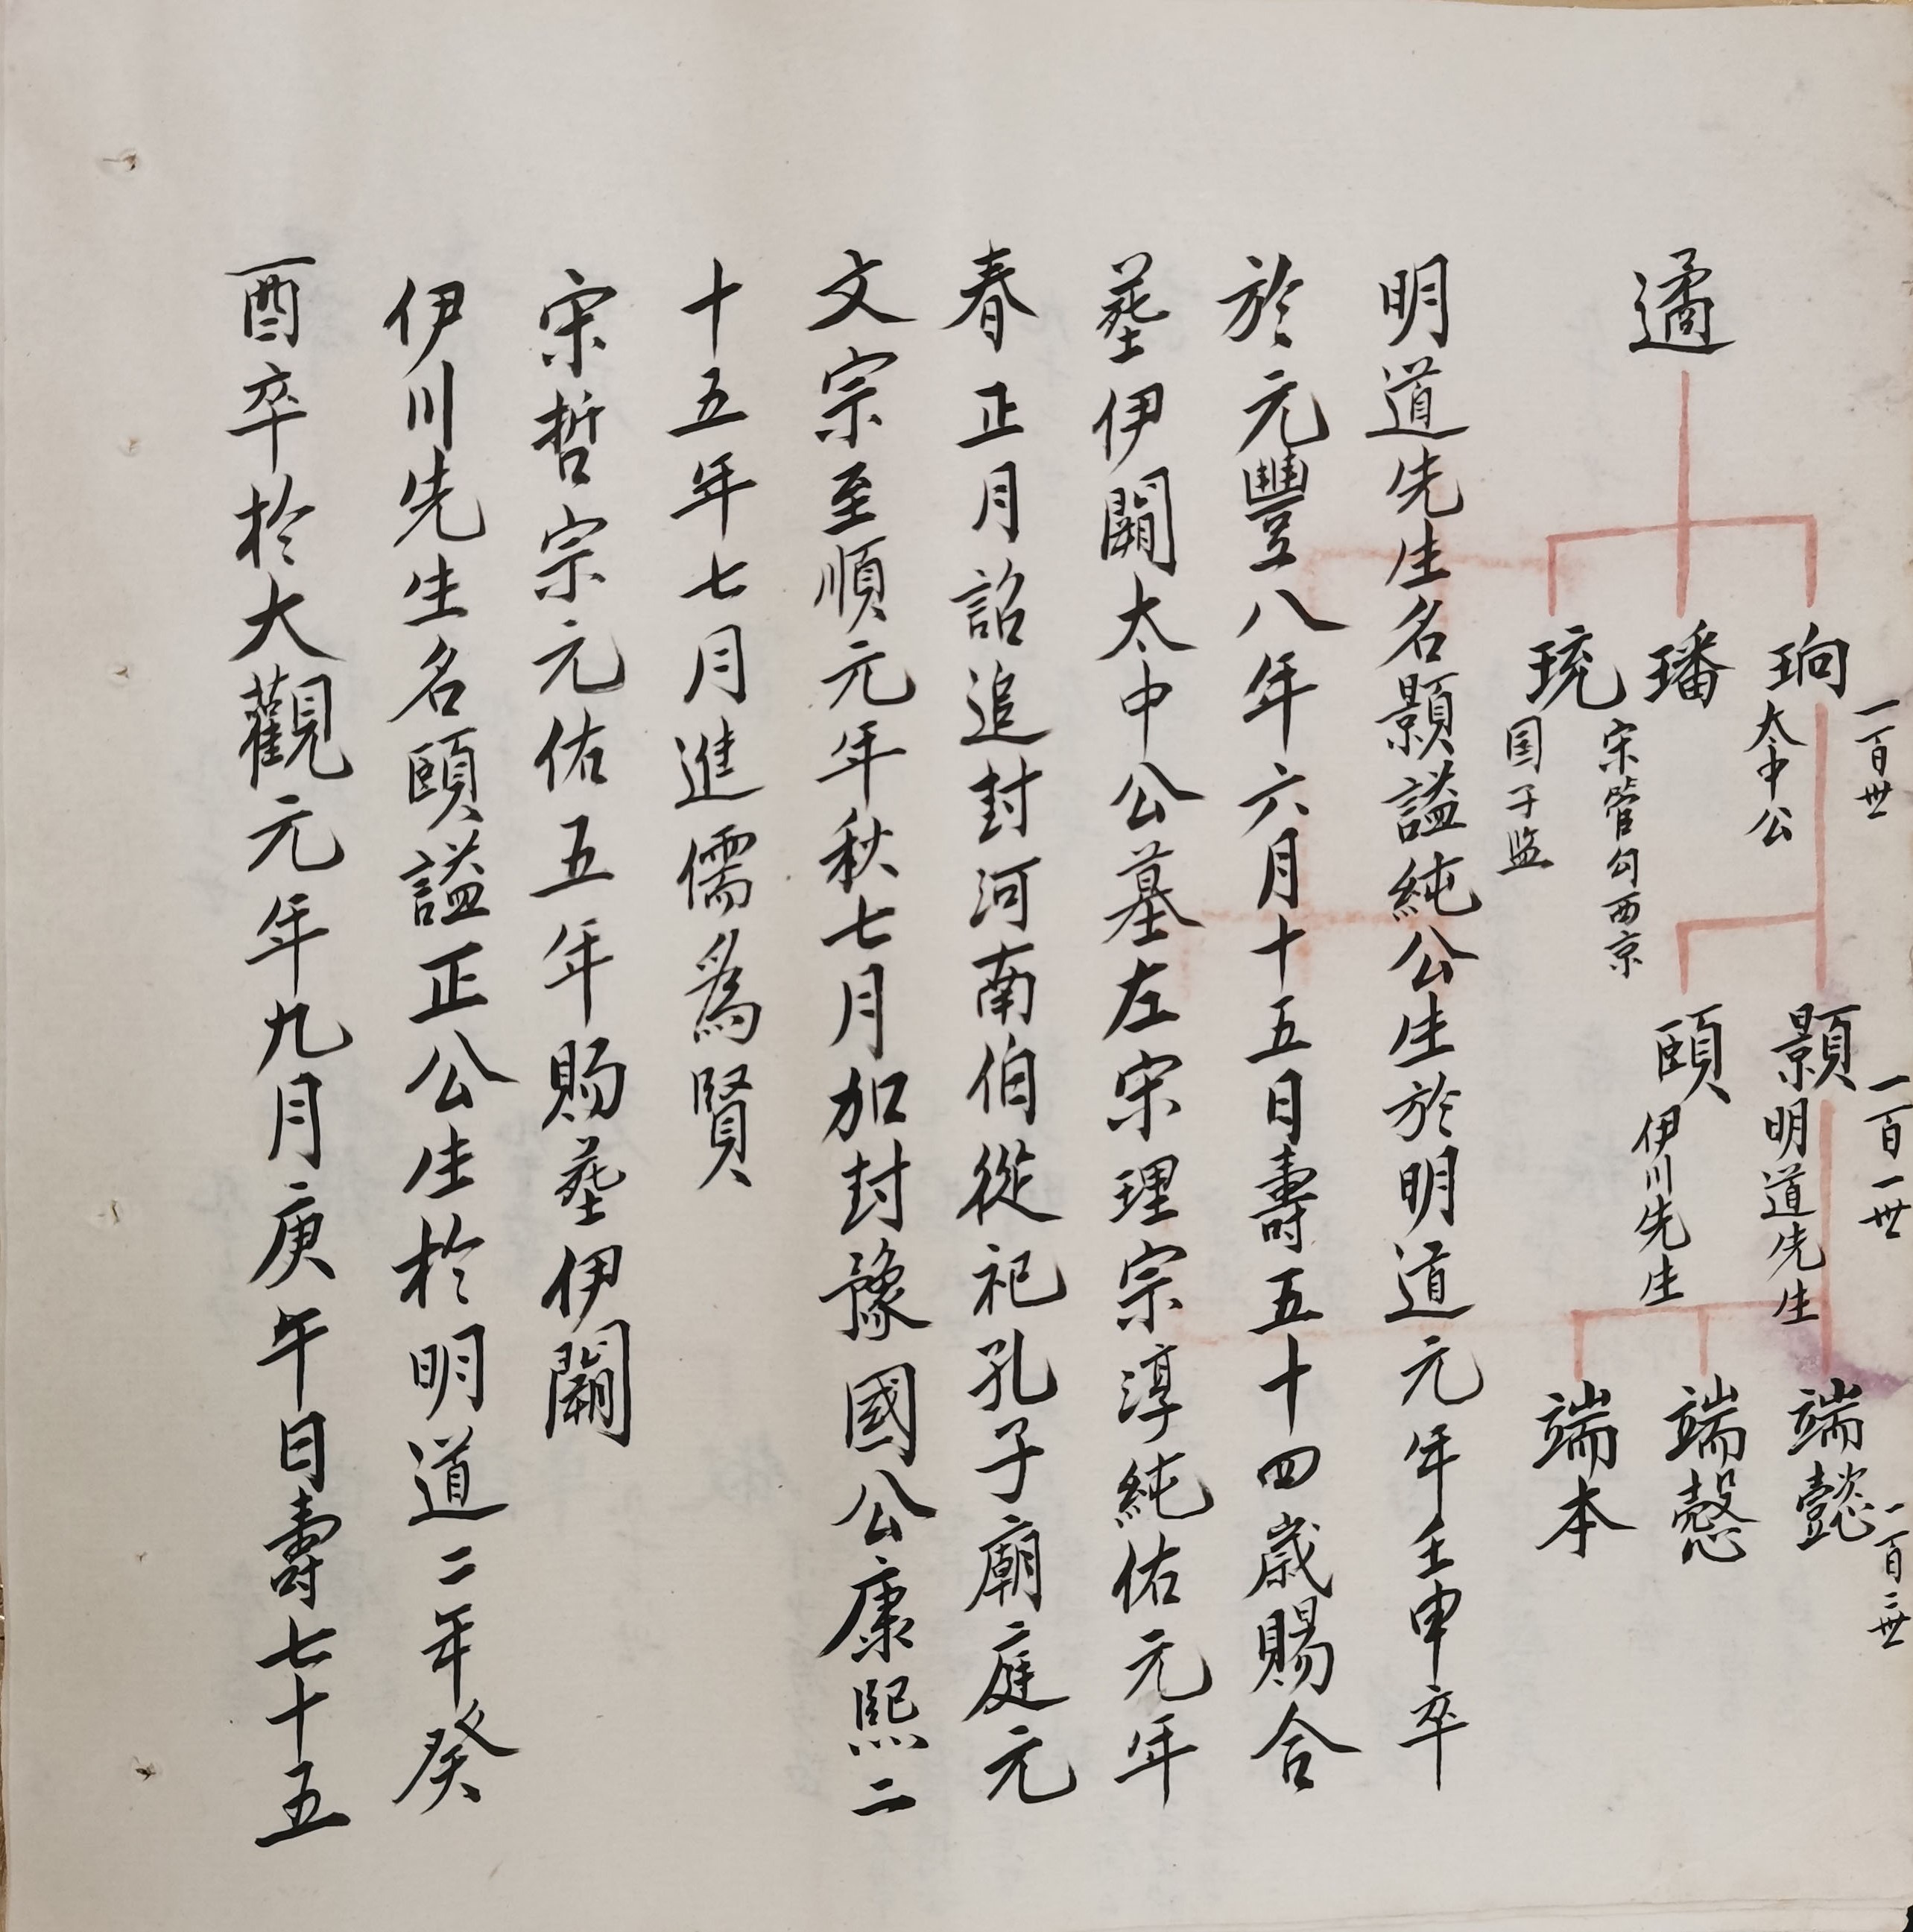 遹
一百世
珦 太中公
璠 宋管勾西京
珫 国子监
一百一世
顥 明道先生
頤 伊川先生
一百二世
端懿
端愨
端本
明道先生名顥謚純公生於明道元年壬申卒
於元豐八年六月十五日壽五十四歲賜合
塟伊闕太中公墓左宋理宗淳純佑元年
春正月詔追封河南伯從祀孔子廟庭元
文宗至順元年秋七月加封豫國公康熙二
十五年七月進儒為賢
宋哲宗元佑五年賜塟伊闕
伊川先生名頤謚正公生於明道二年癸
酉卒於大觀元年九月庚午日壽七十五